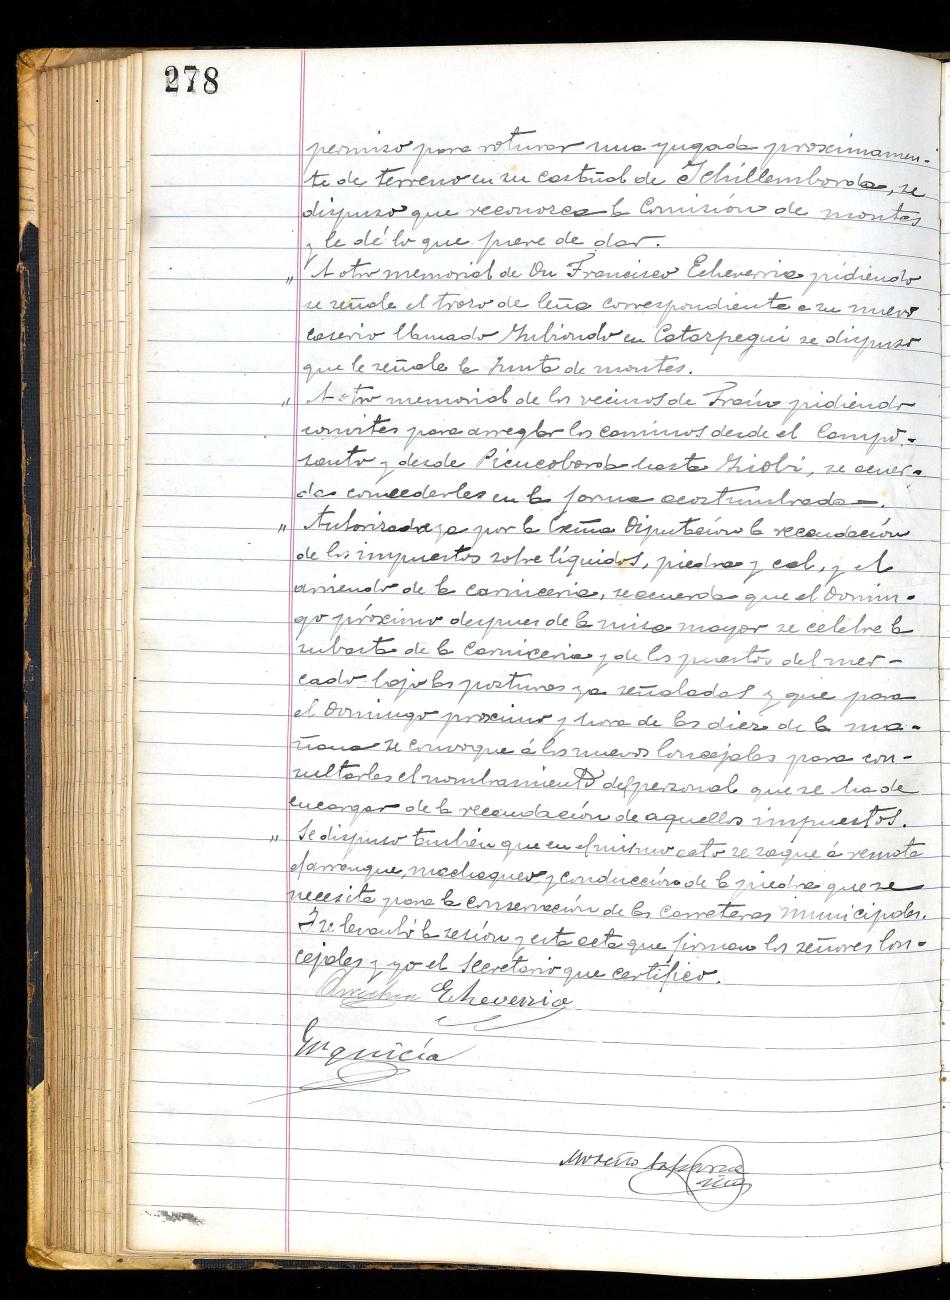 278
permiso para roturar una yugada proximamen-
te de terreno en su castañal de Ichillemborda, se
dispuso que reconozca la Comisión de montes
y le dé lo que fuere de dar.
" A otro memorial de Dn Francisco Echeverria pidiendo
se señale el trozo de leña correspondiente a su nuevo
caserio llamado en se dispuso
que le señale la Junta de montes.
" A otro memorial de los vecinos de pidiendo
convites para arreglar los caminos desde el Campo-
santo y desde hasta se acuer-
da concederles en la forma acostumbrada —.
" Autorizada ya por la Exma Diputación la recaudación
de los impuestos sobre líquidos, piedra y cal, y el
arriendo de la carniceria, se acuerda que el Domin-
go próximo despues de la misa mayor se celebre la
subasta de la Carniceria y de los puestos del mer-
cado bajo las posturas ya señaladas y que para
el Domingo proximo y hora de las diez de la ma-
ñana se convoque á los nuevos Concejales para con-
sultarles el nombramiento del personal que se ha de
encargar de la recaudación de aquellos impuestos.
" Se dispuso tambien que en el mismo acto se saque á remate
el arranque, machaqueo, y conducción de la piedra que se
necesita para la conservación de las carreteras municipales.
Y se levantó la sesión y esta acta que firman los señores Con-
cejales y yo el Secretario que certifico.
Echeverria